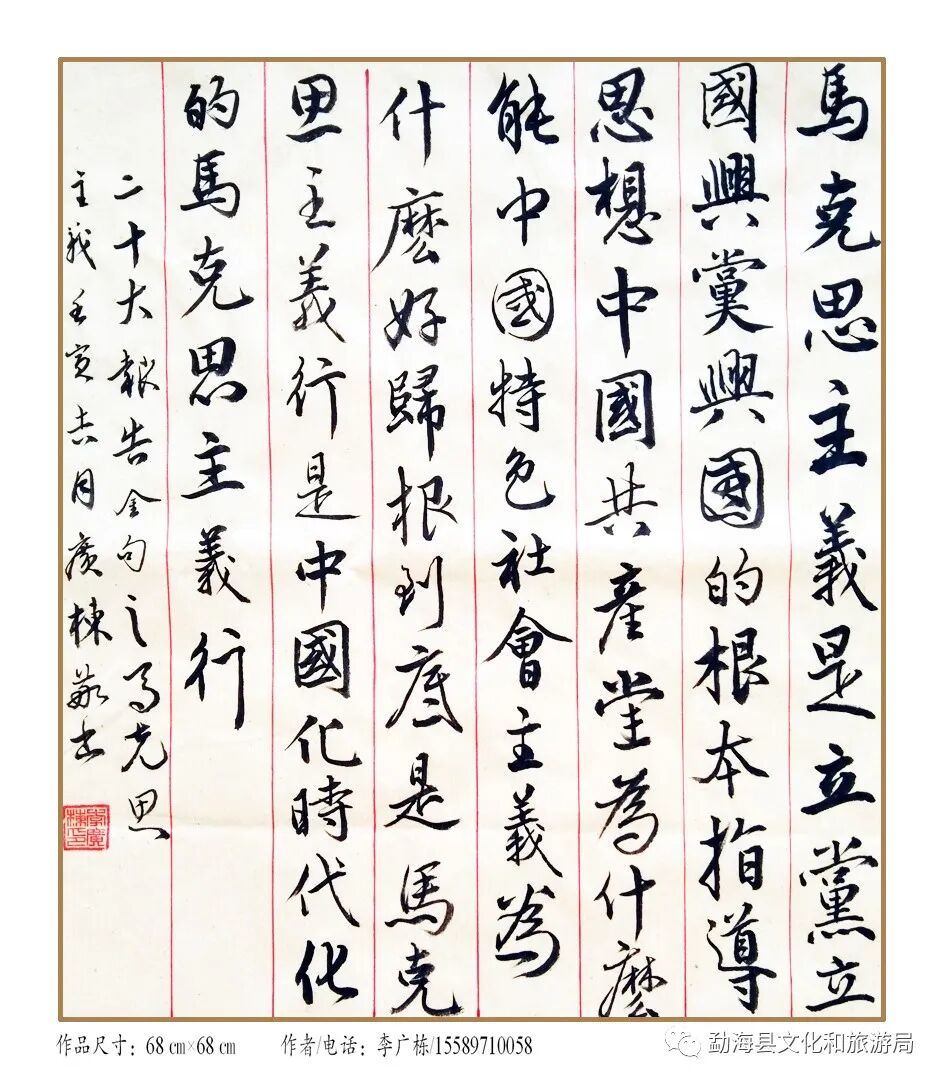 馬克思主義是立黨立
國興黨興國的根本指導
思想中國共產堂為什麼
能中國特色社會主義為
什麼好歸根到底是馬克
思主義行是中國化時代化
的馬克思主義行
二十大報告金句之馬克思
主義壬寅吉月廣棟敬書
李廣棟印
作品尺寸：68 cm×68 cm 作者/电话：李广栋/15589710058
勐海县文化和旅游局